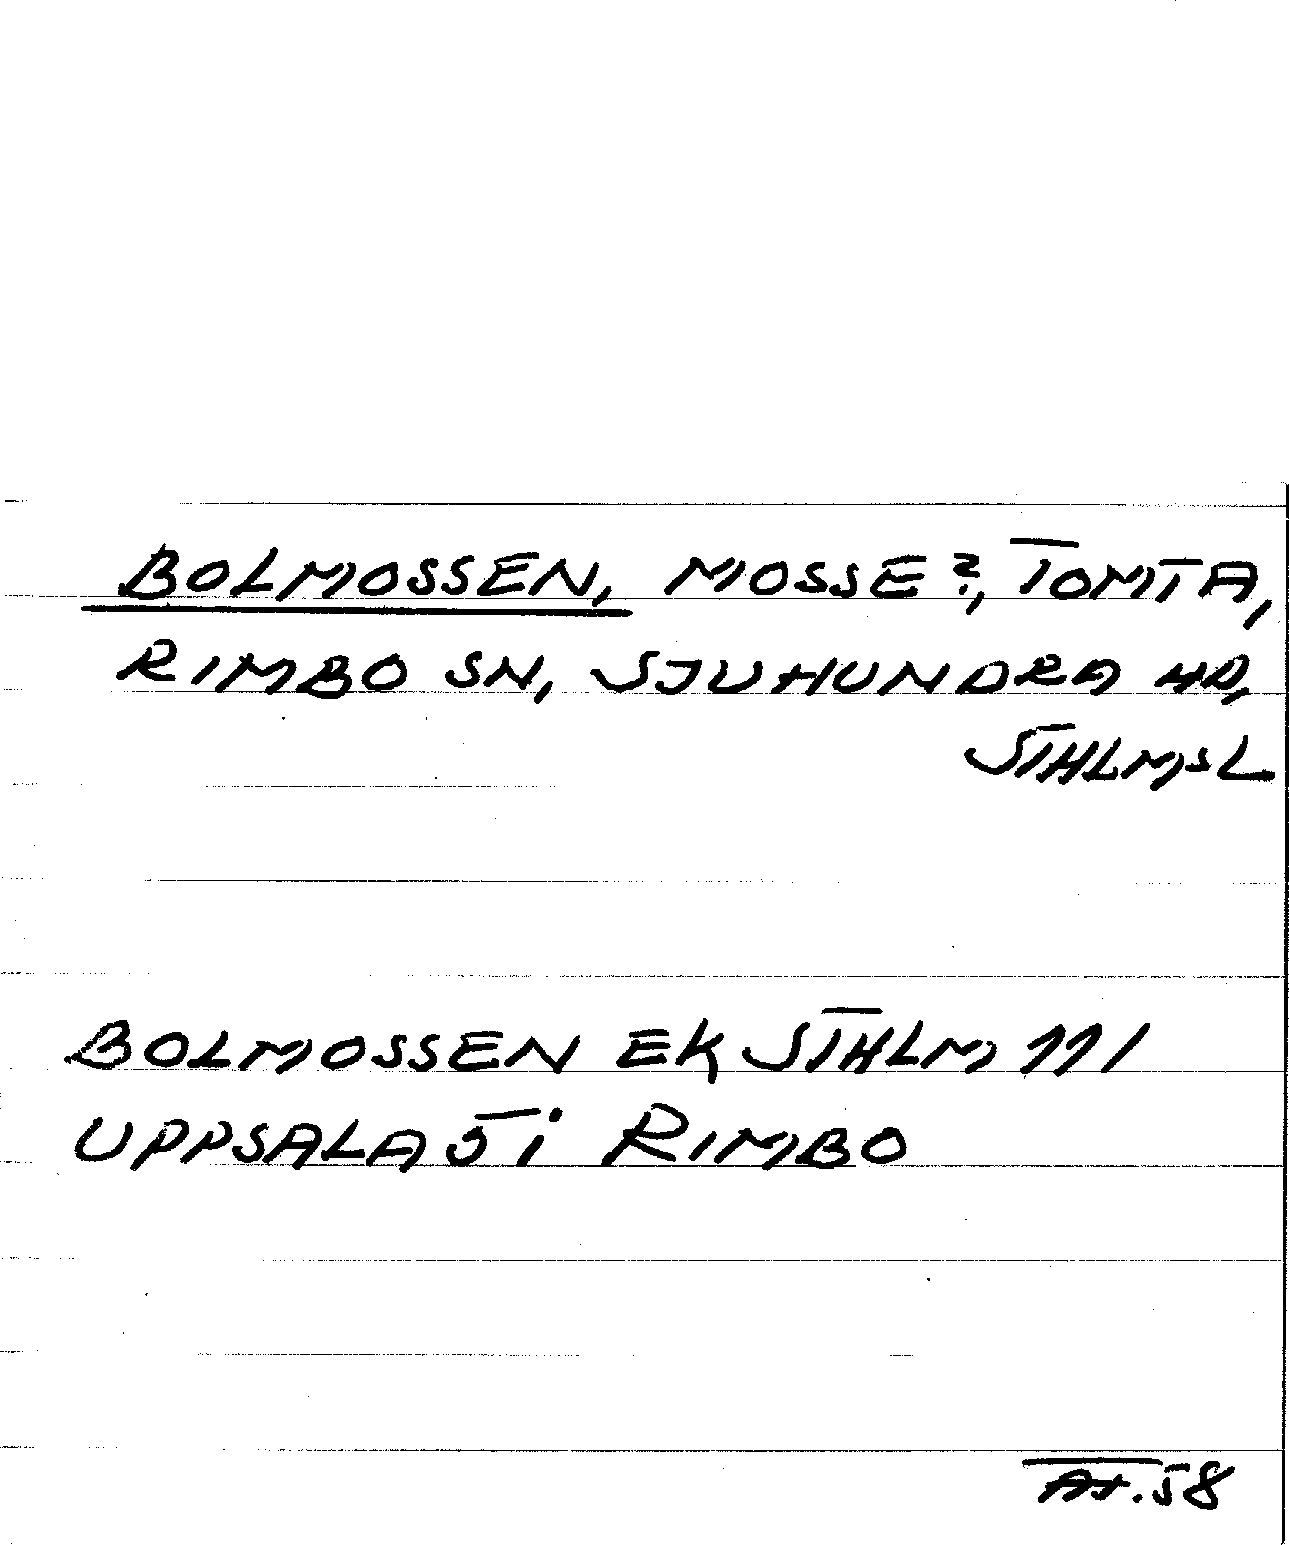 BOLMOSSEN, MOSSE?, TOMTA,
RIMBO SN, SJUHUNDRA HD,
STHLMSL
BOLMOSSEN EK STHLM 111
UPPSALA 5 i RIMBO
AT.58